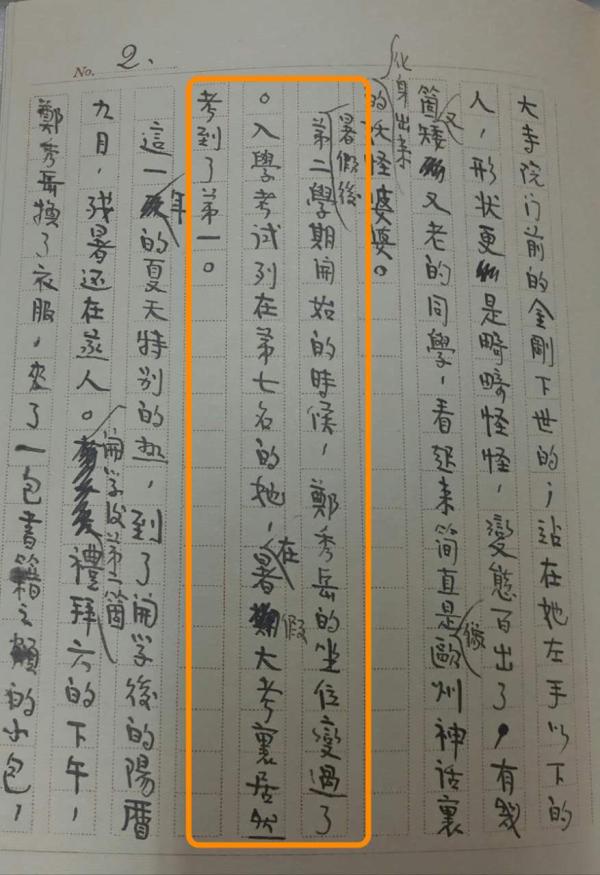 No. 2.
大寺院门前的金剛下世的；站在她左手以下的
人，形状更是畸畸怪怪，變態百出了，有幾
箇又矮又老的同學，看起来简直是像歐州神话裏
化身出来的妖怪婆婆。
暑假後第二學期開始的時候，鄭秀岳的坐位變過了
。入學考试列在第七名的她，在暑假大考裏居然
考到了第一。
這一年的夏天特别的热，到了開学後的陽曆
九月，残暑还在蒸人。開学後第二箇禮拜六的下午，
鄭秀岳换了衣服，夾了一包書籍之類的小包，